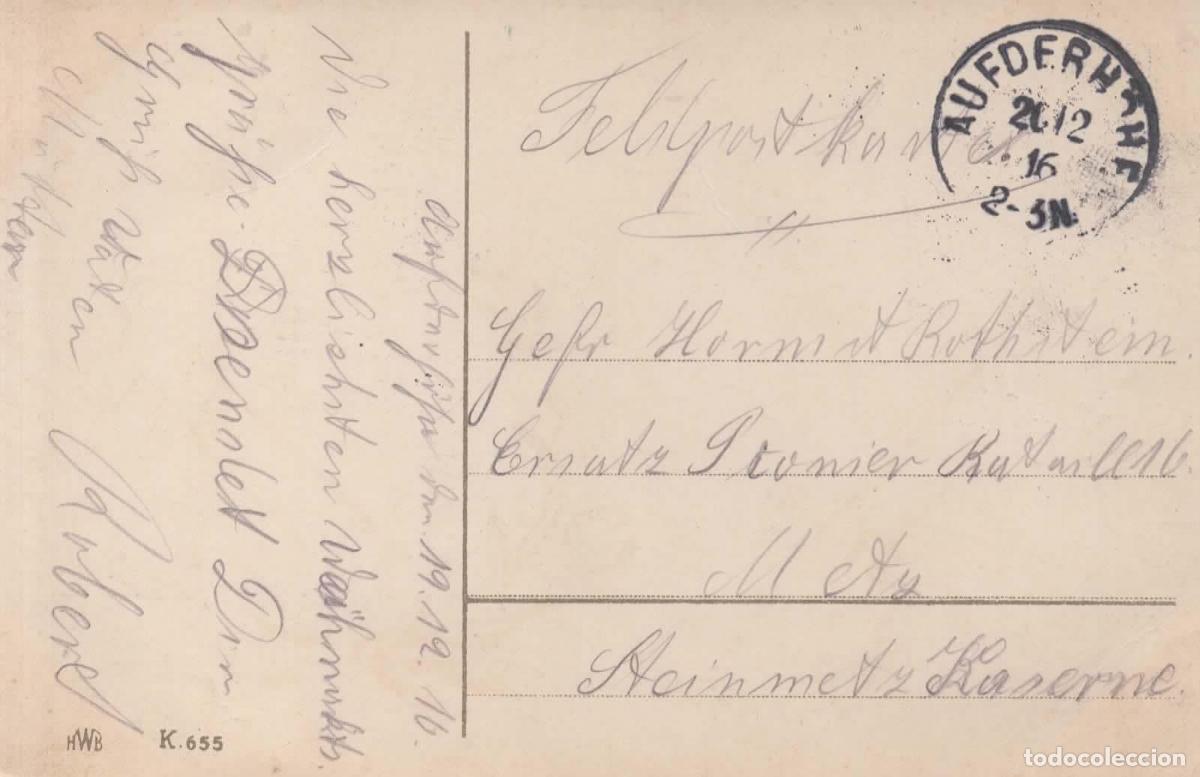 Aufderhöhe den 19.12.16.
Die herzlichsten Weihnachts
grüße sendet Dir
Robert
Feldpostkarte
AUFDERHÖHE
20 12
16
2-3N.
Gefr Rothstein.
Ersatz Pionier Bataill 16.
Metz
Steinmetz Kaserne.
HWB
K.655
todocoleccion